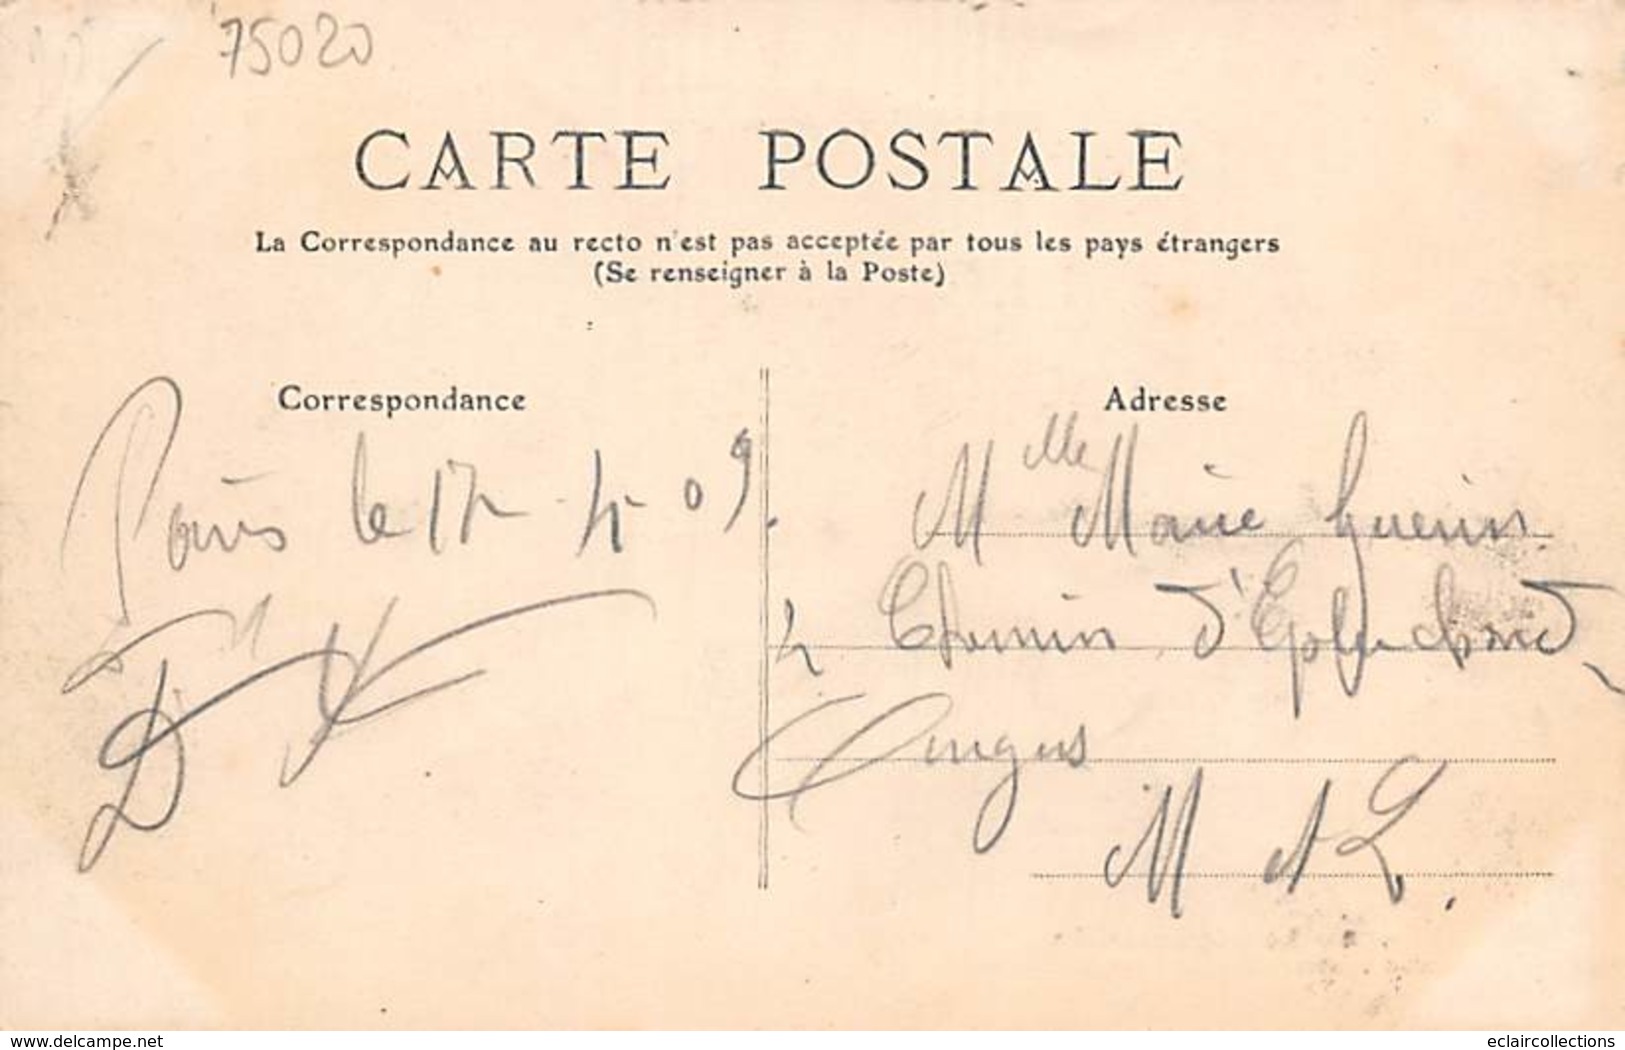 75020
CARTE POSTALE
La Correspondance au recto n'est pas acceptée par tous les pays étrangers
(Se renseigner à la Poste)
Correspondance
Adresse
Paris le 17-4-09.
Mlle Marie Guerin
4 Chemin d'
M & L.
www.delcampe.net
eclaircollections